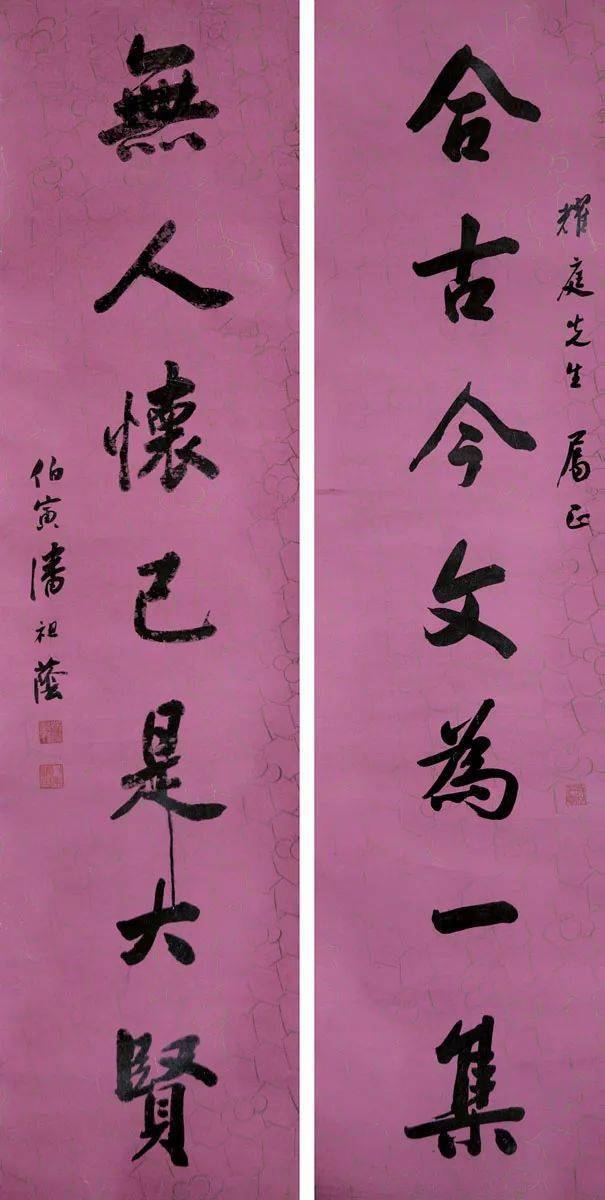 耀庭先生屬正
合古今文為一集
無人懷己是大賢
伯寅潘祖蔭